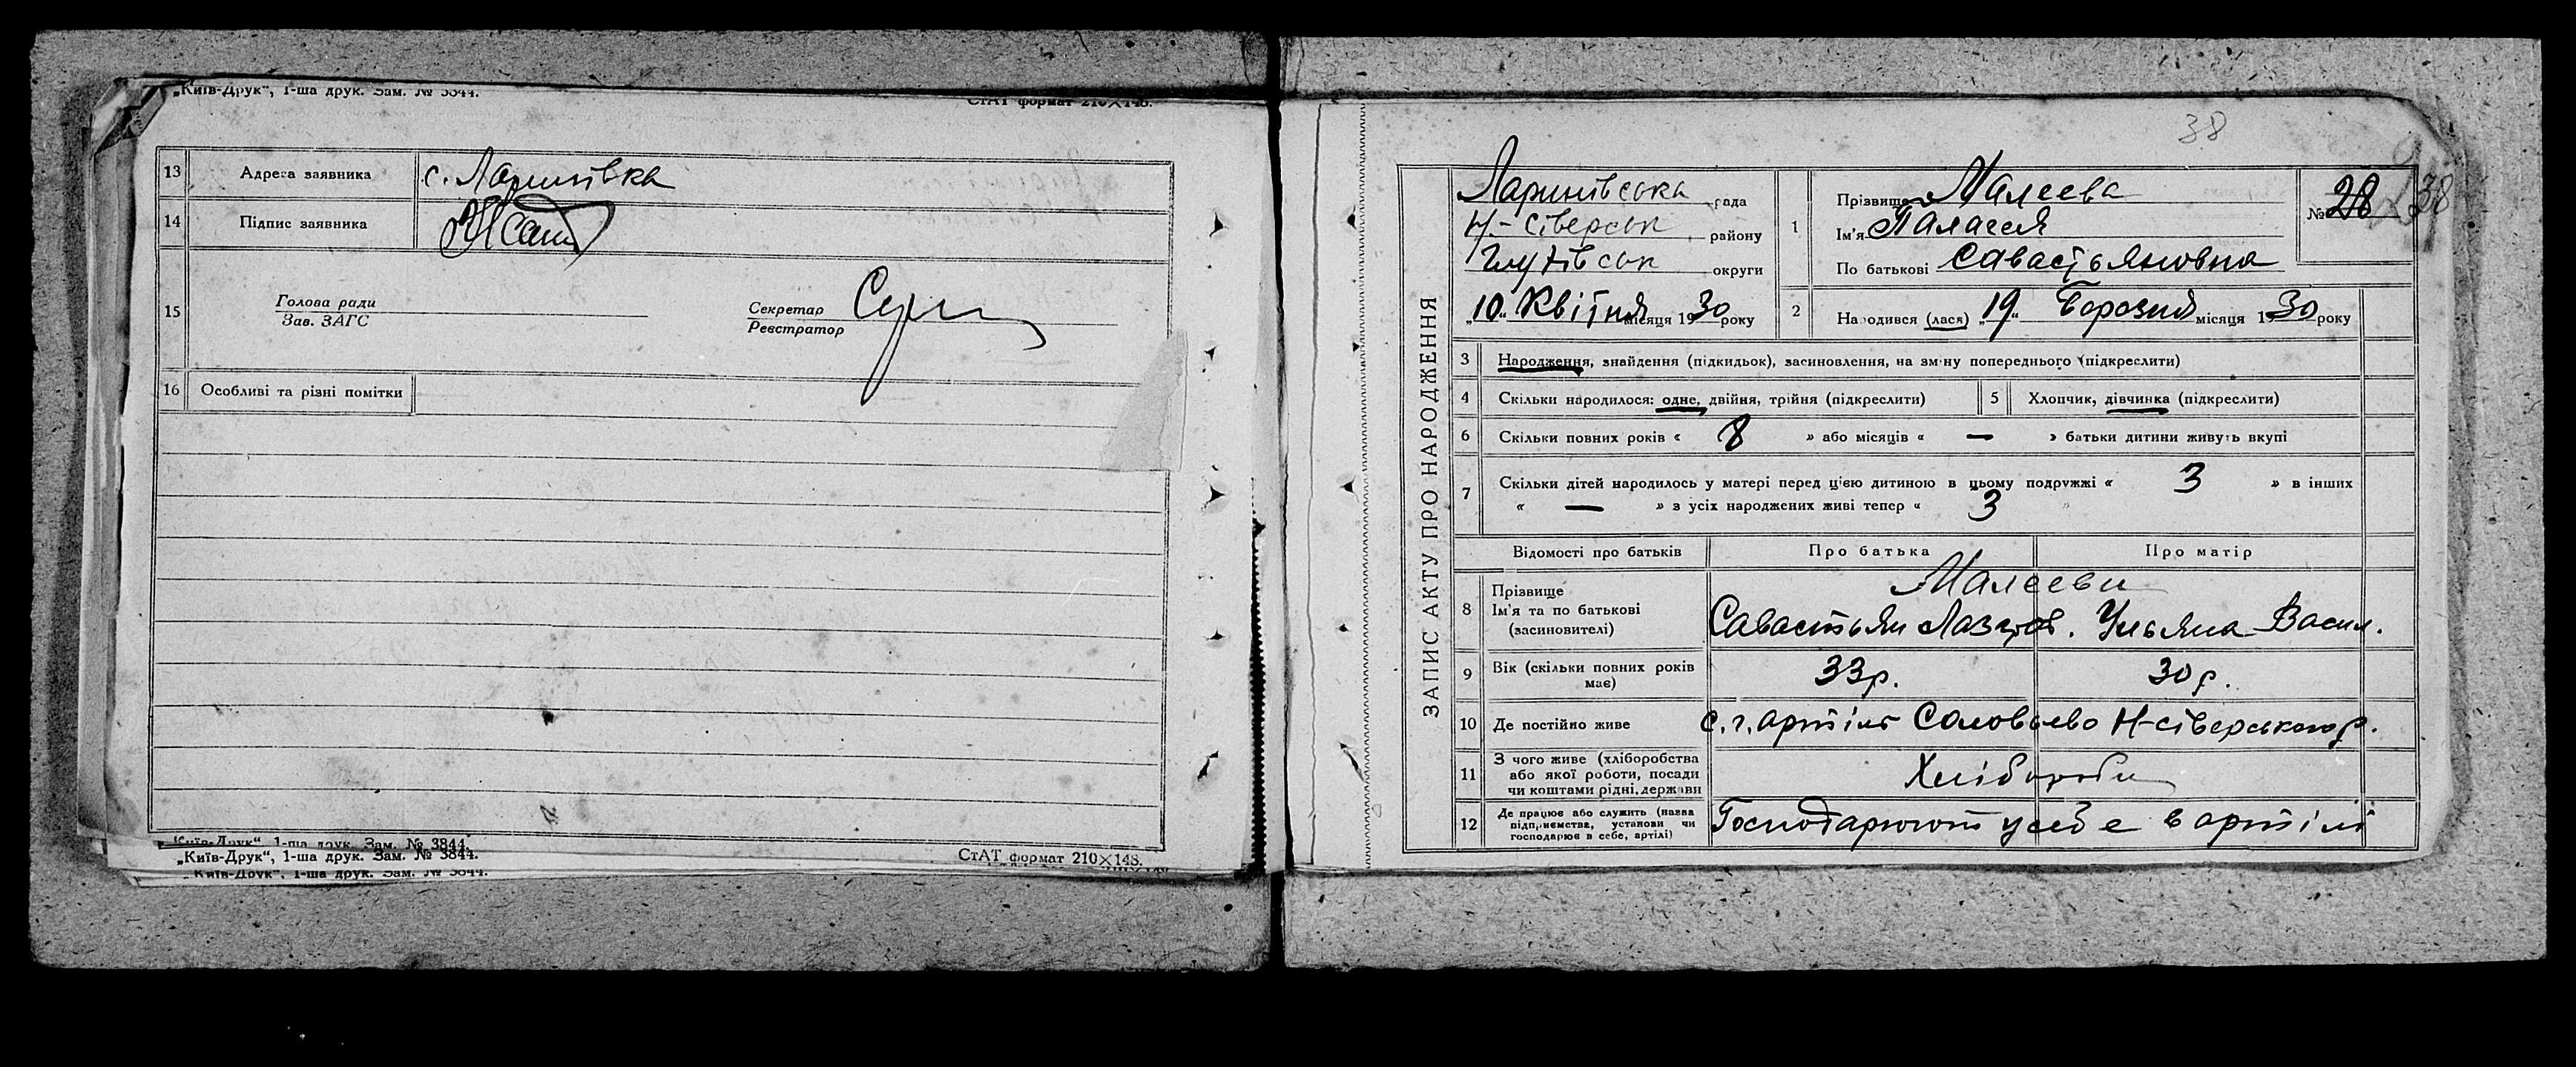 „Київ-Друк“, 1-ша друк. Зам. № 3844.
СтАТ формат 210×148.
13 Адреса заявника с.Ларинівка
14 Підпис заявника
15 Голова ради
Зав. ЗАГС
Секретар
Реєстратор
16 Особливі та різні помітки
„Київ-Друк“, 1-ша друк. Зам. № 3844.
„Київ-Друк“, 1-ша друк. Зам. № 3844.
СтАТ формат 210×148.
„Київ-Друк“, 1-ша друк. Зам. № 3844.
38
ЗАПИС АКТУ ПРО НАРОДЖЕННЯ
Ларинівська рада
Н.-Сіверськ району
Глухівськ округи
„10“ Квітня місяця 1930 року
1 Прізвище Малеева
Ім'я Палагея
По батькові Савастьяновна
№ 28 38
2 Народився (лася) „19“ Березня місяця 1930 року
3 Народження, знайдення (підкидьок), засиновлення, на зміну попереднього (підкреслити)
4 Скільки народилося: одне, двійня, трійня (підкреслити)
5 Хлопчик, дівчинка (підкреслити)
6 Скільки повних років « 8 » або місяців « — » батьки дитини живуть вкупі
7 Скільки дітей народилось у матері перед цією дитиною в цьому подружжі « 3 » в інших
« — » з усіх народжених живі тепер « 3 »
Відомості про батьків Про батька Про матір
8 Прізвище Малееви
Ім'я та по батькові
(засиновителі) Савастьян . Ульяна Васил.
9 Вік (скільки повних років
має) 33р. 30 р.
10 Де постійно живе с. г. артіль Соловьево Н-сіверського р.
11 З чого живе (хліборобства
або якої роботи, посади
чи коштами рідні, держави Хлібороби
12 Де працює або служить (назва
підприємства, установи чи
господарює в себе, артілі) Господарюют у себе в артілі